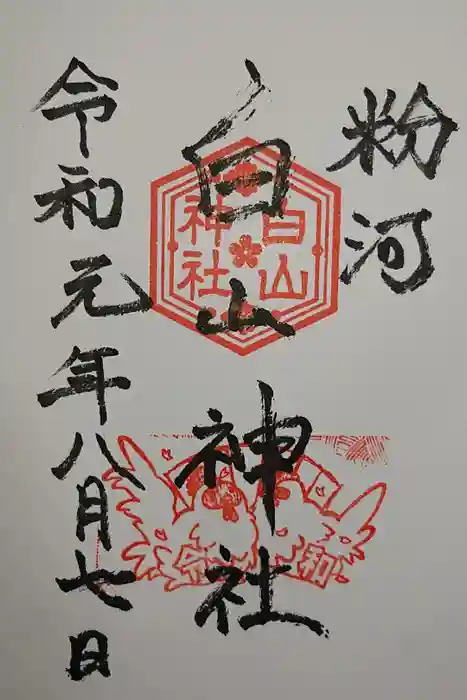 粉河
白山神社
令和元年八月七日
白山
神社
令
和